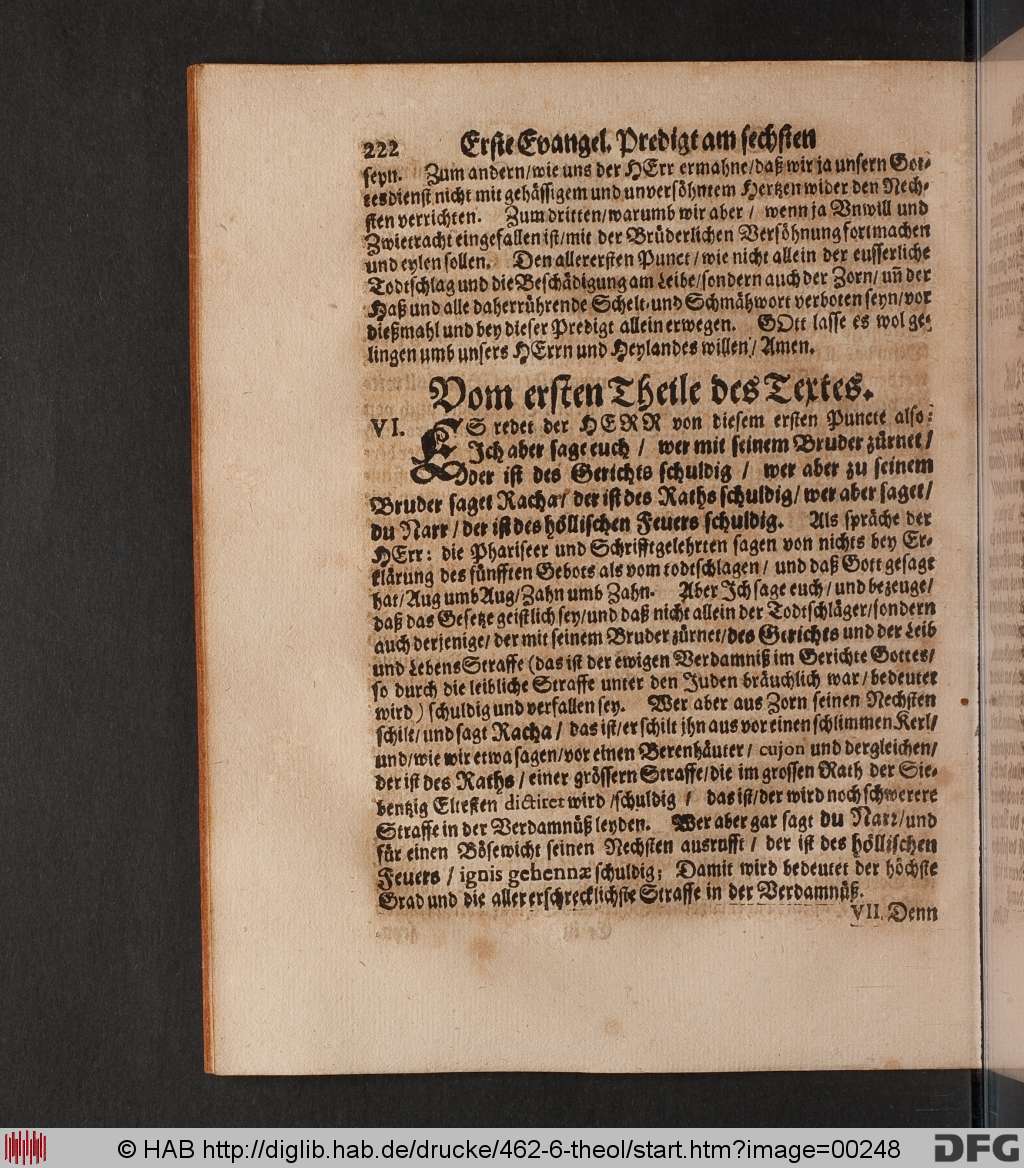 222 Erste Evangel. Predigt am sechsten
seyn. Zum andern/wie uns der HErr ermahne/daß wir ja unsern Got-
tesdienst nicht mit gehässigem und unversöhntem Hertzen wider den Nech-
sten verrichten. Zum dritten/warumb wir aber / wenn ja Vnwill und
Zwietracht eingefallen ist/mit der Brüderlichen Versöhnung fortmachen
und eylen sollen. Den allerersten Punct / wie nicht allein der eusserliche
Todtschlag und die Beschädigung am Leibe/sondern auch der Zorn/ uñ der
Haß und alle daherrührende Schelt- und Schmähwort verboten seyn/vor
dießmahl und bey dieser Predigt allein erwegen. GOtt lasse es wol ge-
lingen umb unsers HErrn und Heylandes willen/ Amen.
Vom ersten Theile des Textes.
VI. ES redet der HERR von diesem ersten Puncte also:
Ich aber sage euch / wer mit seinem Bruder zürnet/
der ist des Gerichts schuldig / wer aber zu seinem
Bruder saget Racha/ der ist des Raths schuldig/ wer aber saget/
du Narr / der ist des höllischen Feuers schuldig. Als spräche der
HErr: die Phariseer und Schrifftgelehrten sagen von nichts bey Er-
klärung des fünfften Gebots als vom todtschlagen / und daß Gott gesagt
hat/Aug umb Aug/Zahn umb Zahn. Aber Ich sage euch/und bezeuge/
daß das Gesetze geistlich sey/und daß nicht allein der Todtschläger/sondern
auch derjenige/der mit seinem Bruder zürnet/des Gerichts und der Leib
und Lebens Straffe (das ist der ewigen Verdamniß im Gerichte Gottes/
so durch die leibliche Straffe unter den Juden bräuchlich war/ bedeutet
wird) schuldig und verfallen sey. Wer aber aus Zorn seinen Nechsten
schilt/und sagt Racha / das ist/er schilt jhn aus vor einen schlimmen Kerl/
und/wie wir etwa sagen/vor einen Berenhäuter / cujon und dergleichen/
der ist des Raths / einer grössern Straffe/die im grossen Rath der Sie-
bentzig Eltesten dictiret wird /schuldig / das ist/der wird noch schwerere
Straffe in der Verdamnüß leyden. Wer aber gar sagt du Narr/und
für einen Bösewicht seinen Nechsten ausrufft / der ist des höllischen
Feuers / ignis gehennæ schuldig; Damit wird bedeutet der höchste
Grad und die allererschrecklichste Straffe in der Verdamnüß.
VII. Denn
© HAB http://diglib.hab.de/drucke/462-6-theol/start.htm?image=00248
DFG